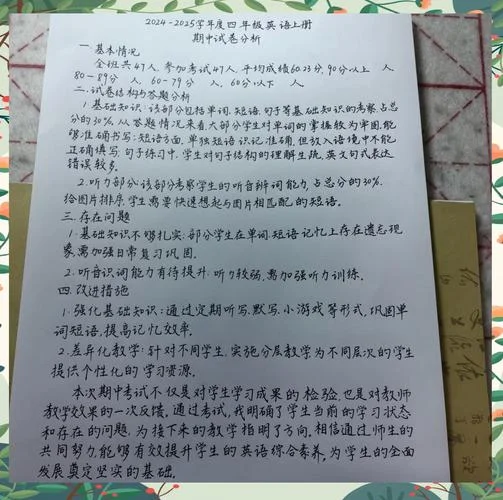 2024-2025学年度四年级英语上册
期中试卷分析
一.基本情况
全班共47人,参加考试47人,平均成绩60.23分,90分以上 人
80-89分 人,60-79分 人,60分以下 人
二.试卷结构与答题分析
1.基础知识:该部分包括单词、短语、句子等基础知识的考察,占总
分的30%,从答题情况来看,大部分学生对单词的掌握较为牢固,能
够准确书写;短语方面,单独短语识记准确,但放入语境中不能
正确填写;句子练习中,学生对句子结构的理解生疏,英文句式表达
错误较多。
2.听力部分:该部分考察学生的听音辨词能力,占总分的30%.
给图片排序,学生需要快速想起与图片相匹配的短语。
三.存在问题
1.基础知识不够扎实:部分学生在单词、短语记忆上存在遗忘现
象,需加强日常复习巩固。
2.听音识词能力有待提升:听力较弱,需加强听力训练。
四.改进措施
1.强化基础知识:通过定期听写、默写、小游戏等形式,巩固单
词短语,提高记忆效率。
2.差异化教学:针对不同学生,实施分层教学,为不同层次的学生
提供个性化的学习资源。
本次期中考试不仅是对学生学习成果的检验,也是对教师
教学效果的一次反馈,通过考试,我明确了学生当前的学习状态
和存在的问题,为接下来的教学指明了方向。相信通过师生的
共同努力,能够有效提升学生的英语综合素养,为学生的全面
发展奠定坚实的基础。